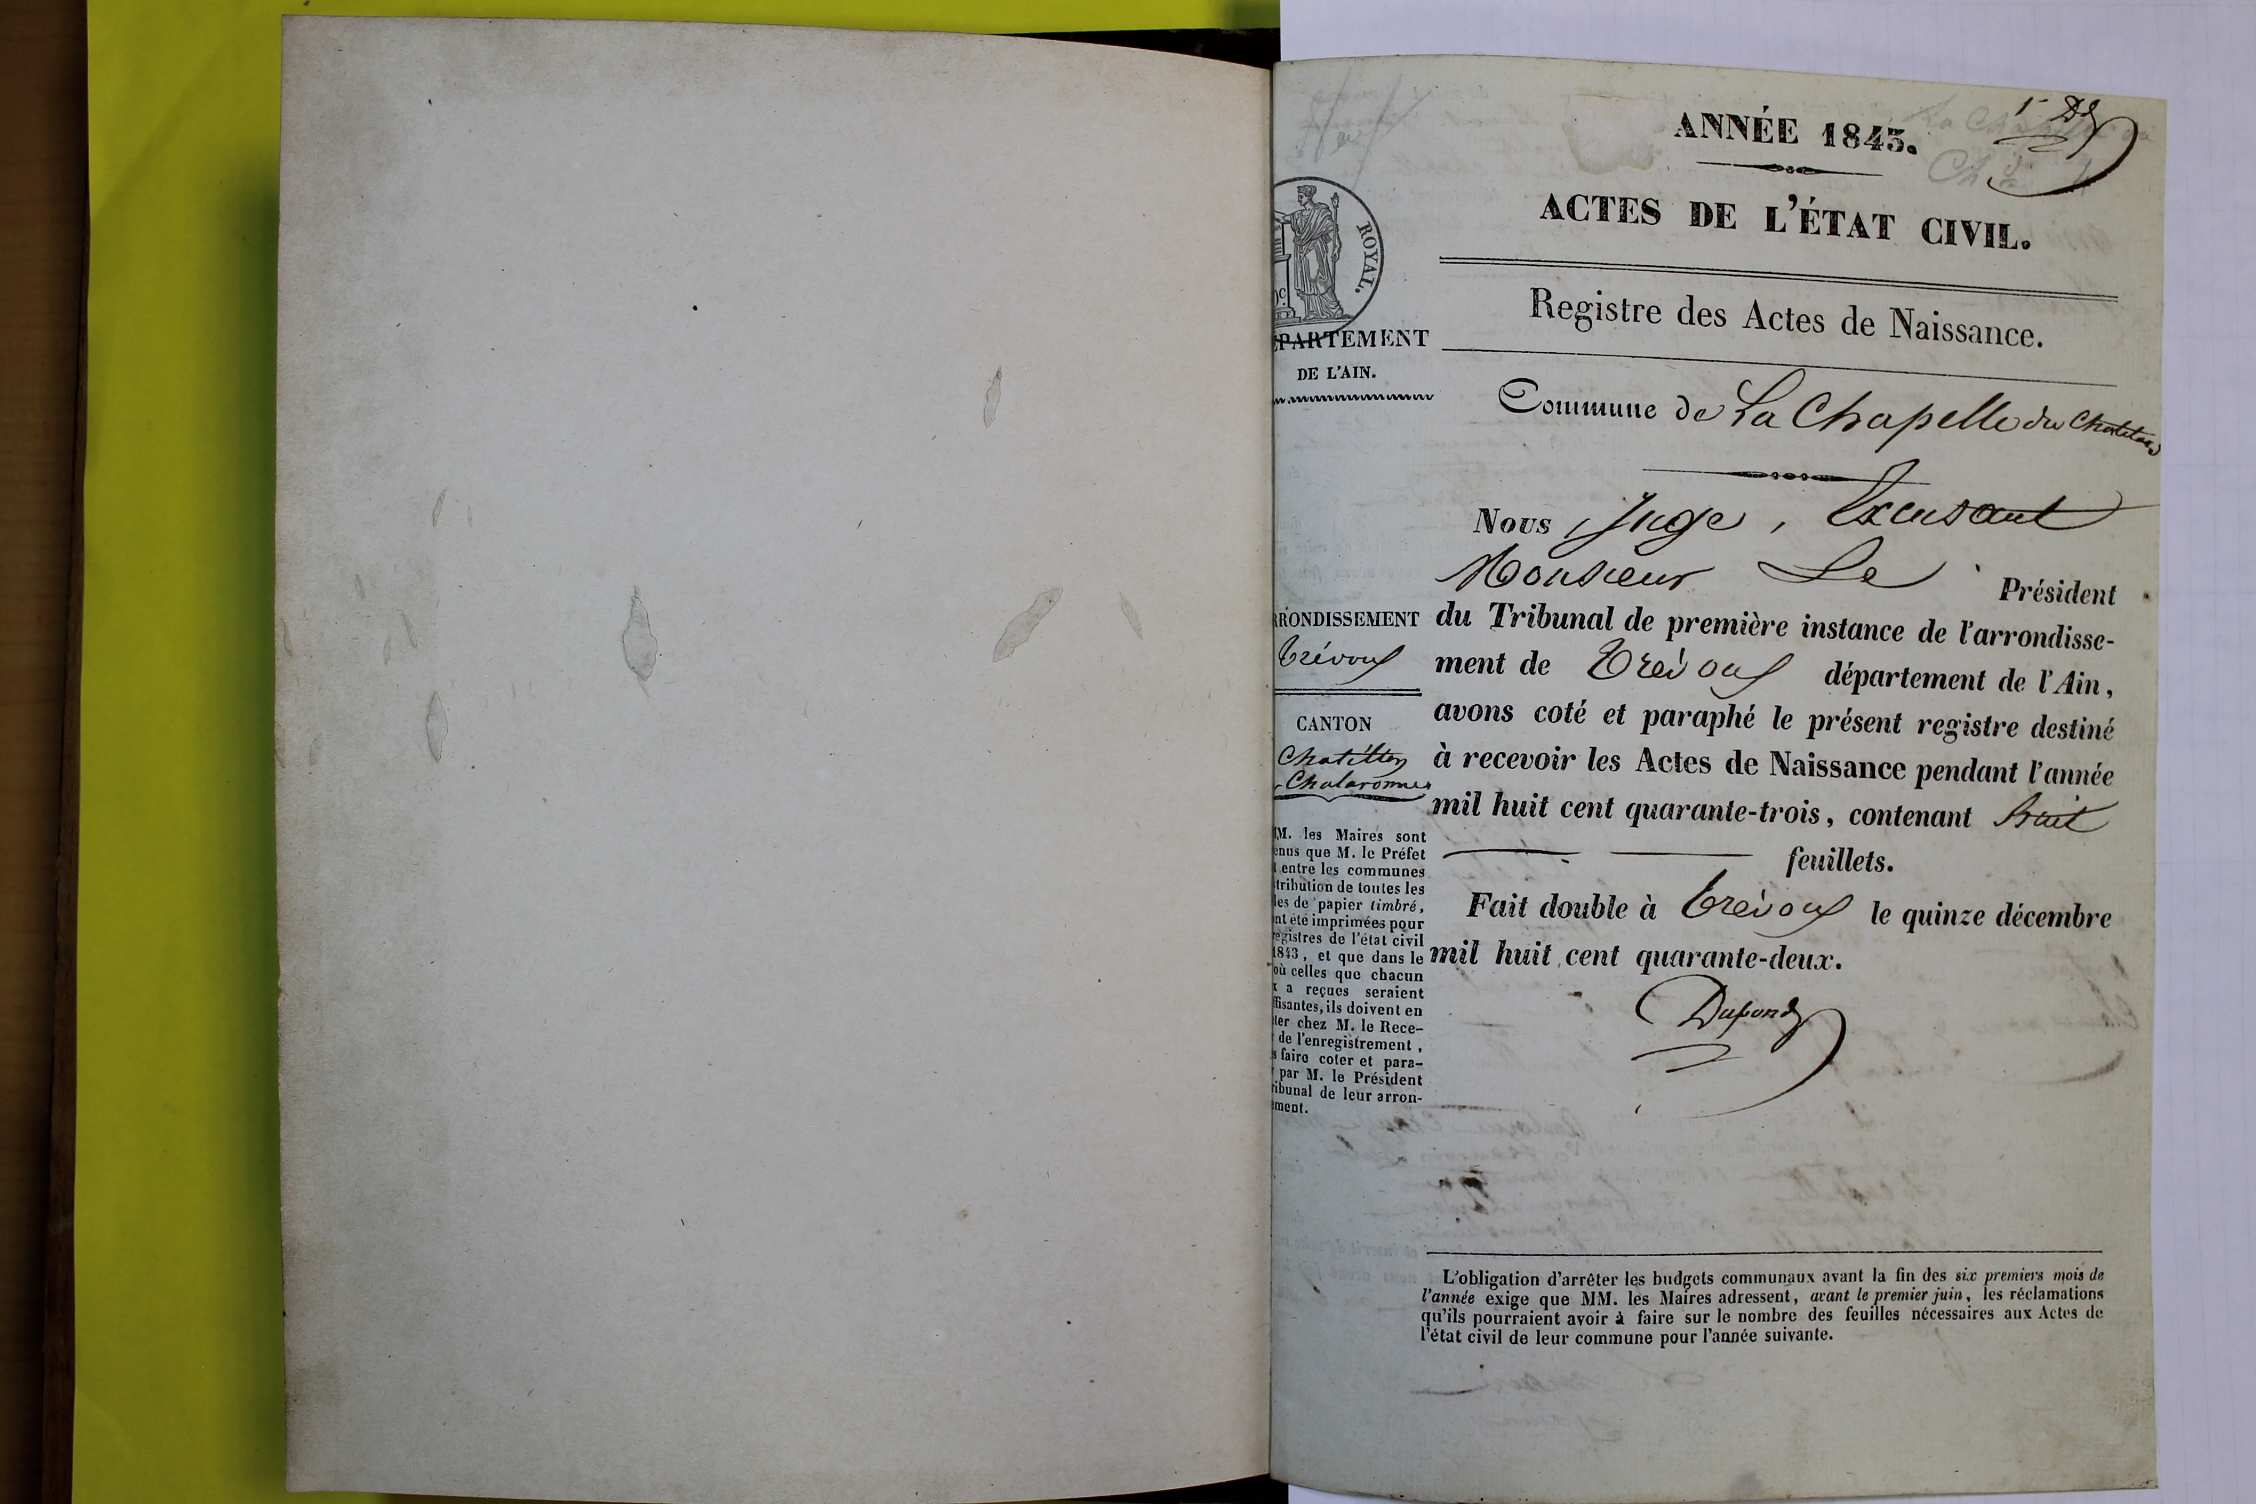 ANNÉE 1843.
1 Dd
ACTES DE L'ÉTAT CIVIL.
ROYAL.
Registre des Actes de Naissance.
ÉPARTEMENT
DE L'AIN.
Commune de La Chapelle du Chatelard
Nous Juge, Excusant
Monsieur Le Président
du Tribunal de première instance de l'arrondisse-
ment de Trévoux département de l'Ain,
avons coté et paraphé le présent registre destiné
à recevoir les Actes de Naissance pendant l'année
mil huit cent quarante-trois, contenant huit
feuillets.
Fait double à Trévoux le quinze décembre
mil huit cent quarante-deux.
Dupond
RRONDISSEMENT
Trévoux
CANTON
Chatillon
Chalaronne
MM. les Maires sont
enus que M. le Préfet
t entre les communes
tribution de toutes les
les de papier timbré,
nt été imprimées pour
registres de l'état civil
1843, et que dans le
où celles que chacun
x a reçues seraient
ffisantes, ils doivent en
ter chez M. le Rece-
r de l'enregistrement,
s faire coter et para-
r par M. le Président
ribunal de leur arron-
ement.
L'obligation d'arrêter les budgets communaux avant la fin des six premiers mois de
l'année exige que MM. les Maires adressent, avant le premier juin, les réclamations
qu'ils pourraient avoir à faire sur le nombre des feuilles nécessaires aux Actes de
l'état civil de leur commune pour l'année suivante.